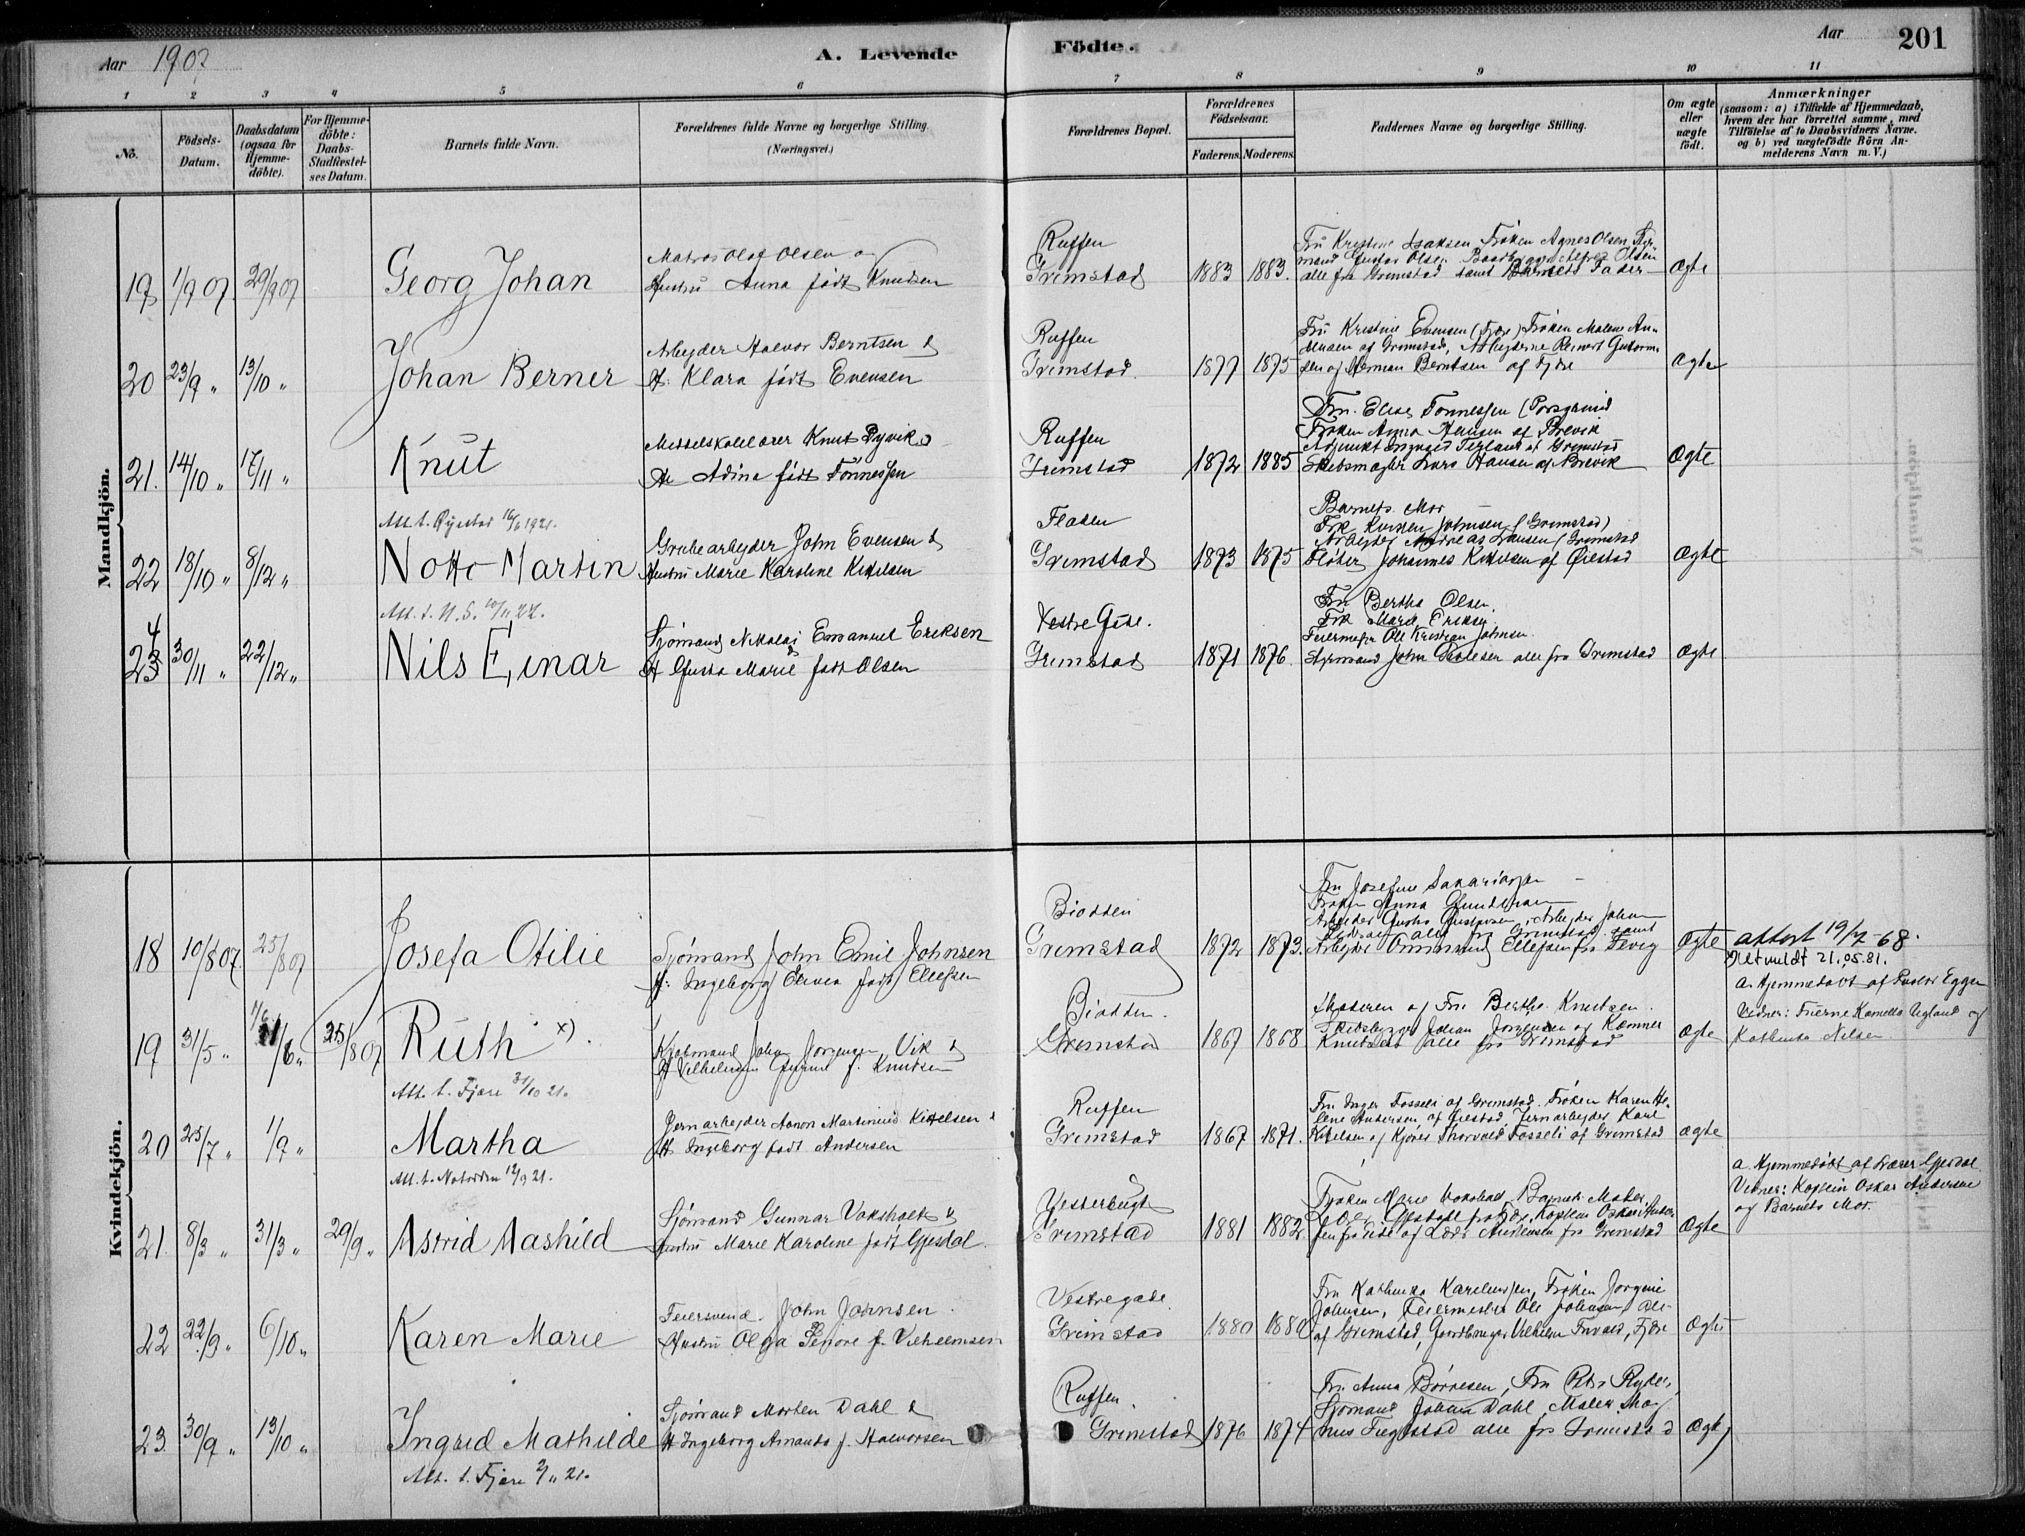 Aar 1907
A. Levende
Födte.
Aar
201
1 2 3 4 5 6 7 8 9 10 11
No.
Födsels-
Datum.
Daabsdatum
(ogsaa for
Hjemme-
döbte).
For Hjemme-
döbte:
Daabs-
Stadfæstel-
ses Datum.
Barnets fulde Navn.
Forældrenes fulde Navne og borgerlige Stilling.
(Næringsvei.)
Forældrenes Bopæl.
Forældrenes
Födselsaar.
Faderens. Moderens.
Faddernes Navne og borgerlige Stilling.
Om ægte
eller
uægte
födt.
Anmærkninger
(saasom: a) i Tilfælde af Hjemmedaab,
hvem der har forrettet samme, med
Tilföielse af to Daabsvidners Navne.
og b) ved uægtefödte Börn An-
melderens Navn m.V.)
Mandkjön.
19 1/9 07 29/9 07
Georg Johan
Matros Olaf Olsen og
Hustru Anna født Knudsen
Ruffen
Grimstad
1883 1883.
Fru Kristine Isaksen Frøken Agnes Olsen, Styr-
mand Gustav Olsen Baadbygger Alfred Olsen
alle fra Grimstad samt Barnets Fader
Ægte
20 23/9 " 13/10 "
Johan Berner
Arbeyder Halvor Berntsen &
H. Klara født Evensen
Ruffen
Grimstad.
1877 1875
Fru Kristine Evensen (Fjære) Frøken Malene An-
af Grimstad, Arbeyderne Reinert Guttorm-
sen og Herman Berntsen af Fjære
Ægte
21. 14/10 " 17/11 "
Knut
Middelskolelærer Knut Dyvik &
H. Adina født Tønnessen
Ruffen
Grimstad
1872 1885
Fru. Elise Tønnessen (Porsgrund
Frøken Anna Hansen af Brevik
Adjunkt Terland af Grimstad
Skibsmægler Lars Hansen af Brevik
Ægte
Att. t. Øyestad 16/6 1921.
22 18/10 " 8/12 "
Notto Martin
Grubearbeyder John Evensen &
Hustru Marie Karoline Kittelsen
Fladen
Grimstad
1873 1875
Barnets Mor
Frk Karen Johnsen (Grimstad)
Arbeyder Andreas Hansen (Grimstad
Fløter Johannes Kittelsen af Øiestad
Ægte
Att. t. N.S. 10/11 22.
4
23 30/11 " 22/12 "
Nils Einar
Sjømand Nikolai Emanuel Eriksen
& H Gusta Marie født Olsen
Vestre Gade.
Grimstad
1871 1876.
Fru Bertha Olsen.
Frk Marie Eriksen
Feiermester Ole Kristian Johnsen
Styrmand John alle fra Grimstad
Ægte
Kvindekjön.
18 10/8 07. 25/8 07
Josefa Otilie
Sjømand John Emil Johnsen
H. Ingeborg Elevine født Ellefsen
Biodden
Grimstad
1872 1873.
Fru Josefine Sakariassen
Frøken Anna Gundersen
Arbeyder Gustav Gustavsen, Arbeyder Johan
alle fra Grimstad samt
Arbeyder Ommund Ellefsen fra Fevig
Ægte
attest 19/7 - 68.
Utmeldt 21.05.81.
19 31/5 " 11/6 " 25/8 07
Ruth x)
Kjøbmand John Jørgensen Vik &
H Vilhelmine f. Knudsen
Biodden.
Grimstad
1867 1868
Moderen og Fru Berthe Knutsen.
Skibsbygger Johan Jørgensen og Kæmner
Knutsen alle fra Grimstad
Ægte
a. Hjemmedøbt af Pastor Egger
Vidner: Fruerne Kamilla Ugland og
Kathinka Nilsen
Att. t. Fjære 31/10 21.
20 25/7 " 1/9 "
Martha
Jernarbeyder Aanon Martinius Kittelsen &
H Ingeborg født Andersen
Ruffen
Grimstad
1867 1871.
Fru Inger Fosseli af Grimstad. Frøken Karen He-
lene Andersen, af Øiestad, Jernarbeyder Karl
Kittelsen og Kjører Thorvald Fosseli af Grimstad
Ægte
Att. t. Notodden 12/9 21.
21. 8/3 " 31/3 " 29/9 "
Astrid Aashild
Sjømand Gunnar Voksholt &
Hustru Marie Karoline født Gjesdal.
Vesterbugt
Grimstad
1881 1882
Frøken Marie Voksholt Barnets Moder
Ole Gjesdal fra Fjære, Kaptein Oskar Ander-
sen fra Eide og Lods Andersen fra Grimstad
Ægte
a. Hjemmedøbt af Lærer Gjesdal
Vidner: Kaptein Oskar Andersen
og Barnets Mor.
22 22/9 " 6/10 "
Karen Marie
Feiersvend. John Johnsen &
Hustru Olga Lenore f. Vilhelmsen
Vestregade
Grimstad
1880 1880
Fru Kathinka Karelinssen, Frøken Jorgine
Johnsen, Feiermester Ole Johnsen, alle
af Grimstad, Gaardbruger Vilhelm Fjære
Ægte
23. 30/9 " 13/10 "
Ingrid Mathilde
Sjømand Morten Dahl &
H Ingeborg Amanda f. Halvorsen
Ruffen.
Grimstad
1876 1874
Fru Anna Børresen, Fru Petra Ryder,
Sjømand Johan Dahl, Maler Mag-
nus Fuglestad alle fra Grimstad
Ægte
Att. t. Fjære 2/11 21.